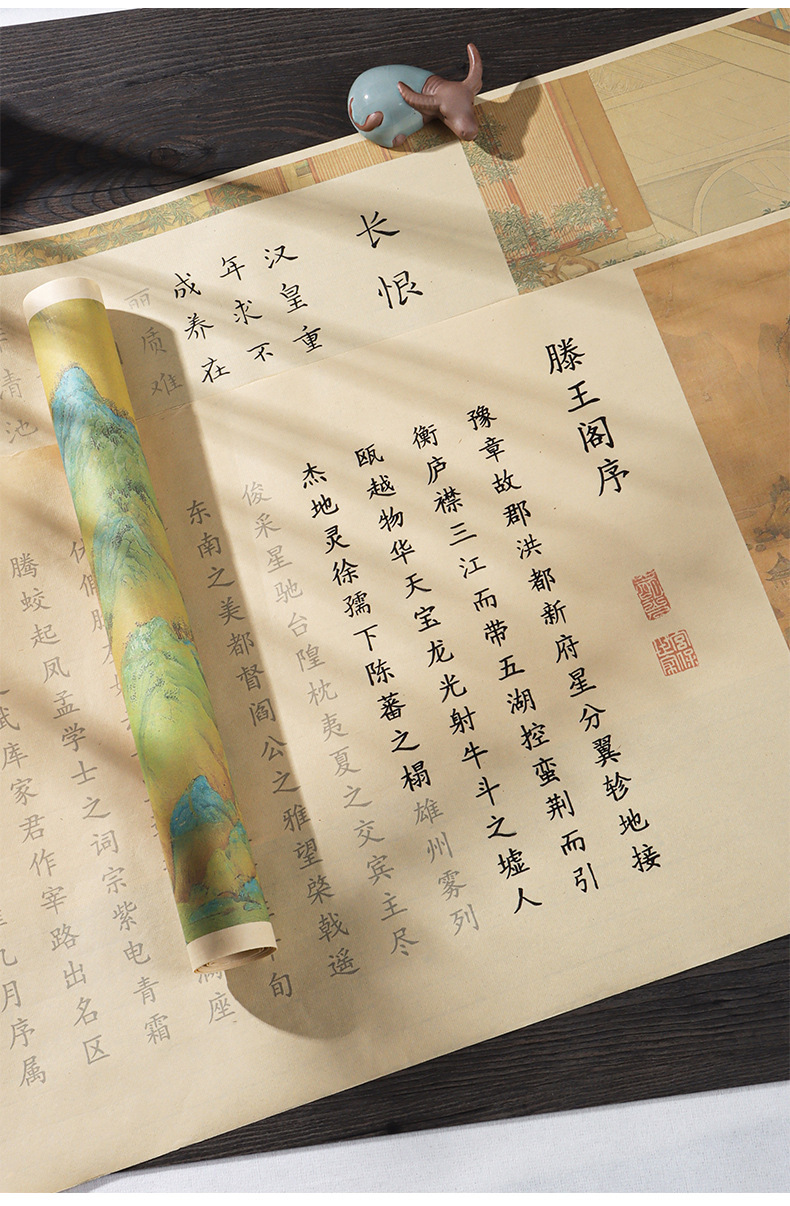 长恨
汉皇重
年求不
成养在
丽质难
清池
滕王阁序
豫章故郡洪都新府星分翼轸地接
衡庐襟三江而带五湖控蛮荆而引
瓯越物华天宝龙光射牛斗之墟人
杰地灵徐孺下陈蕃之榻雄州雾列
俊采星驰台隍枕夷夏之交宾主尽
东南之美都督阎公之雅望棨戟遥
旬
座
腾蛟起凤孟学士之词宗紫电青霜
武库家君作宰路出名区
九月序属